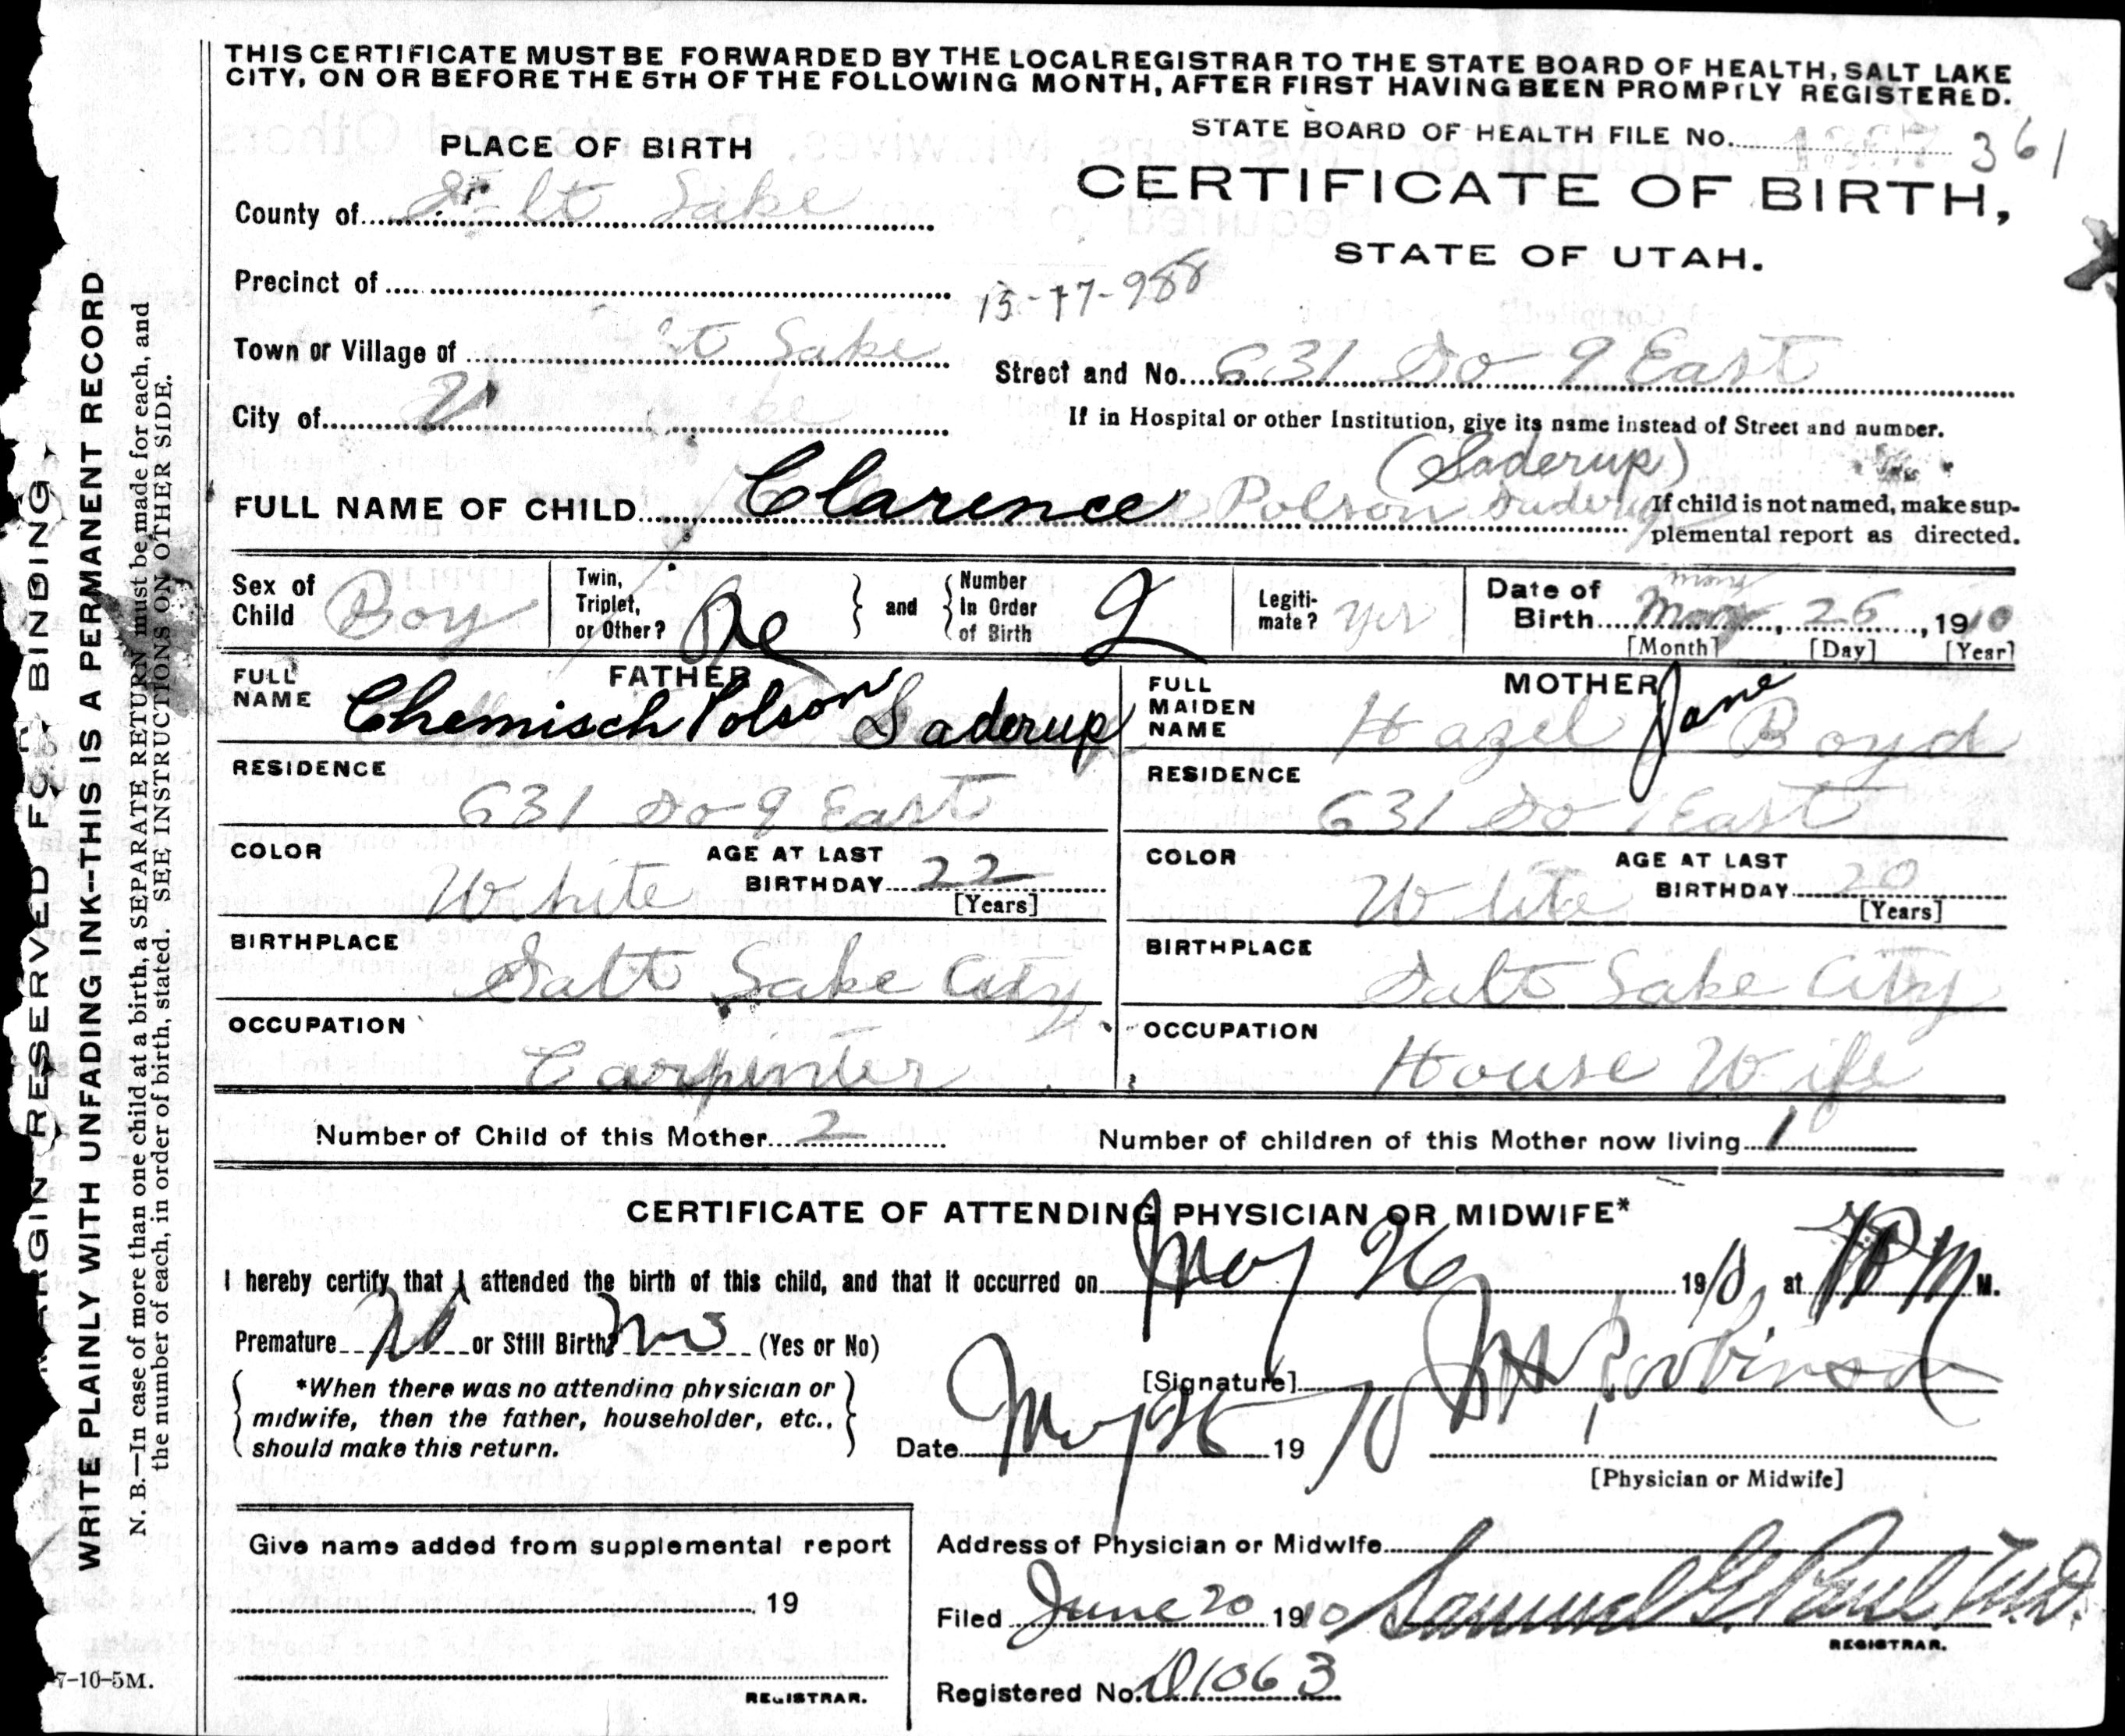 THIS CERTIFICATE MUST BE FORWARDED BY THE LOCAL REGISTRAR TO THE STATE BOARD OF HEALTH, SALT LAKE
CITY, ON OR BEFORE THE 5TH OF THE FOLLOWING MONTH, AFTER FIRST HAVING BEEN PROMPTLY REGISTERED.
STATE BOARD OF HEALTH FILE No. 361
PLACE OF BIRTH
CERTIFICATE OF BIRTH,
STATE OF UTAH.
County of Salt Lake
Precinct of
15-17-988
Town or Village of Lake
Street and No. 631 So 9 East
City of
If in Hospital or other Institution, give its name instead of Street and number.
(Saderup)
FULL NAME OF CHILD Clarence Polson Saderup
If child is not named, make sup-
plemental report as directed.
Sex of Child Boy
Twin, Triplet, or Other?
and
Number In Order of Birth 2
Legiti-mate? yes
Date of Birth May 26, 1910
[Month] [Day] [Year]
FATHER
FULL NAME Chemisch Polson Saderup
MOTHER
FULL MAIDEN NAME Hazel Jane Boyd
RESIDENCE 631 So 9 East
RESIDENCE 631 So 9 East
COLOR White
AGE AT LAST BIRTHDAY 22 [Years]
COLOR White
AGE AT LAST BIRTHDAY 20 [Years]
BIRTHPLACE Salt Lake City
BIRTHPLACE Salt Lake City
OCCUPATION Carpenter
OCCUPATION House Wife
Number of Child of this Mother 2
Number of children of this Mother now living 1
CERTIFICATE OF ATTENDING PHYSICIAN OR MIDWIFE*
I hereby certify that I attended the birth of this child, and that it occurred on May 26 1910 at M.
Premature No or Still Birth? (Yes or No)
*When there was no attending physician or
midwife, then the father, householder, etc.,
should make this return.
[Signature] Robinson
Date May 26 1910
[Physician or Midwife]
Give name added from supplemental report
19
REGISTRAR.
Address of Physician or Midwife
Filed June 20 1910 Samuel G. Paul M.D.
REGISTRAR.
Registered No. D1063
MARGIN RESERVED FOR BINDING
WRITE PLAINLY WITH UNFADING INK--THIS IS A PERMANENT RECORD
N. B.—In case of more than one child at a birth, a SEPARATE RETURN must be made for each, and
the number of each, in order of birth, stated. SEE INSTRUCTIONS ON OTHER SIDE.
7-10-5M.